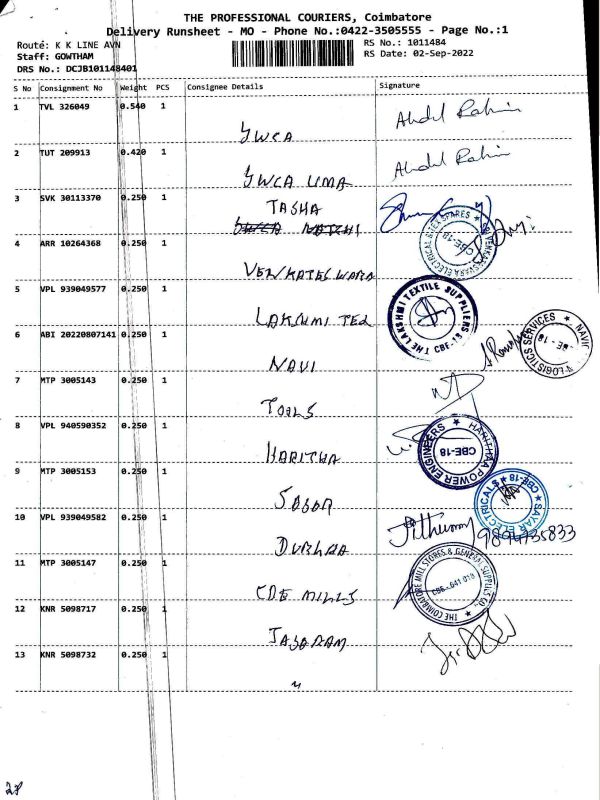 THE PROFESSIONAL COURIERS, Coimbatore
Delivery Runsheet - MO - Phone No.:0422-3505555 - Page No.:1
Route: K K LINE AVN
RS No.: 1011484
Staff: GOWTHAM
RS Date: 02-Sep-2022
DRS No.: DCJB101148401
S No Consignment No Weight PCS Consignee Details Signature
1 TVL 326049 0.540 1 Abdul Rahim
YWCA
2 TUT 209913 0.420 1 Abdul Rahim
YWCA UMA
3 SVK 30113370 0.250 1
TASHA
4 ARR 10264368 0.250 1
VENKATESWARA
VENKATESWARA ELECTRICAL & TEX SPARES ★ CBE-18
5 VPL 939049577 0.250 1
THE LAKSHMI TEXTILE SUPPLIERS CBE-18
LAKSHMI TEX
6 ABI 20220807141 0.250 1
LOGISTICS SERVICES ★ CBE - 18
NAVI
7 MTP 3005143 0.250 1
TOOLS
8 VPL 940590352 0.250 1
HARITHAA POWER ENGINEERS ★ CBE-18
HARITHA
9 MTP 3005153 0.250 1
SAYAR ELECTRICALS ★ CBE-18 ★
10 VPL 939049582 0.250 1
9894735833
DURGAA
11 MTP 3005147 0.250 1
THE COIMBATORE MILL STORES & GENERAL SUPPLIES CO., ★ CBE-641 018
CBE MILLS
12 KNR 5098717 0.250 1
JASARAM
13 KNR 5098732 0.250 1
"
28